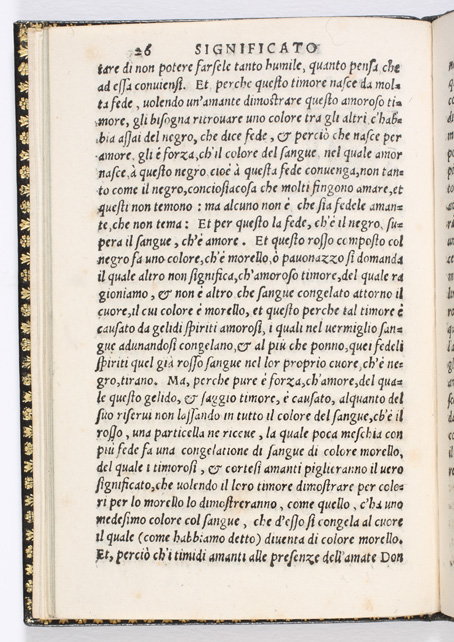 26 SIGNIFICATO
tare di non potere farsele tanto humile, quanto pensa che
ad essa conuiensi. Et perche questo timore nasce da mol-
ta fede, uolendo un'amante dimostrare questo amoroso ti-
more, gli bisogna ritrouare uno colore tra gli altri c'hab-
bia assai del negro, che dice fede, & perciò che nasce per
amore gli è forza, ch'il colore del sangue nel quale amor
nasce à questo negro cioè à questa fede conuenga, non tan-
to come il negro, conciosiacosa che molti fingono amare, et
questi non temono : ma alcuno non è che sia fedele aman-
te, che non tema : Et per questo la fede, ch'è il negro, su-
pera il sangue, ch'è amore. Et questo rosso composto col
negro fa uno colore, ch'è morello, ò pauonazzo si domanda
il quale altro non significa, ch'amoroso timore, del quale ra
gioniamo, & non è altro che sangue congelato attorno il
cuore, il cui colore è morello, et questo perche tal timore è
causato da gelidi spiriti amorosi, i quali nel uermiglio san-
gue adunandosi congelano, & al più che ponno, quei fedeli
spiriti quel già rosso sangue nel lor proprio cuore, ch'è ne-
gro, tirano. Ma, perche pure è forza, ch'amore, del qua-
le questo gelido, & saggio timore, è causato, alquanto del
suo riserui non lassando in tutto il colore del sangue, ch'è il
rosso, una particella ne riceue, la quale poca meschia con
più fede fa una congelatione di sangue di colore morello,
del quale i timorosi, & cortesi amanti piglieranno il uero
significato, che uolendo il loro timore dimostrare per colo-
ri per lo morello lo dimostreranno, come quello, c'ha uno
medesimo colore col sangue, che d'esso si congela al cuore
il quale (come habbiamo detto) diuenta di colore morello.
Et, perciò ch'i timidi amanti alle presenze dell'amate Don